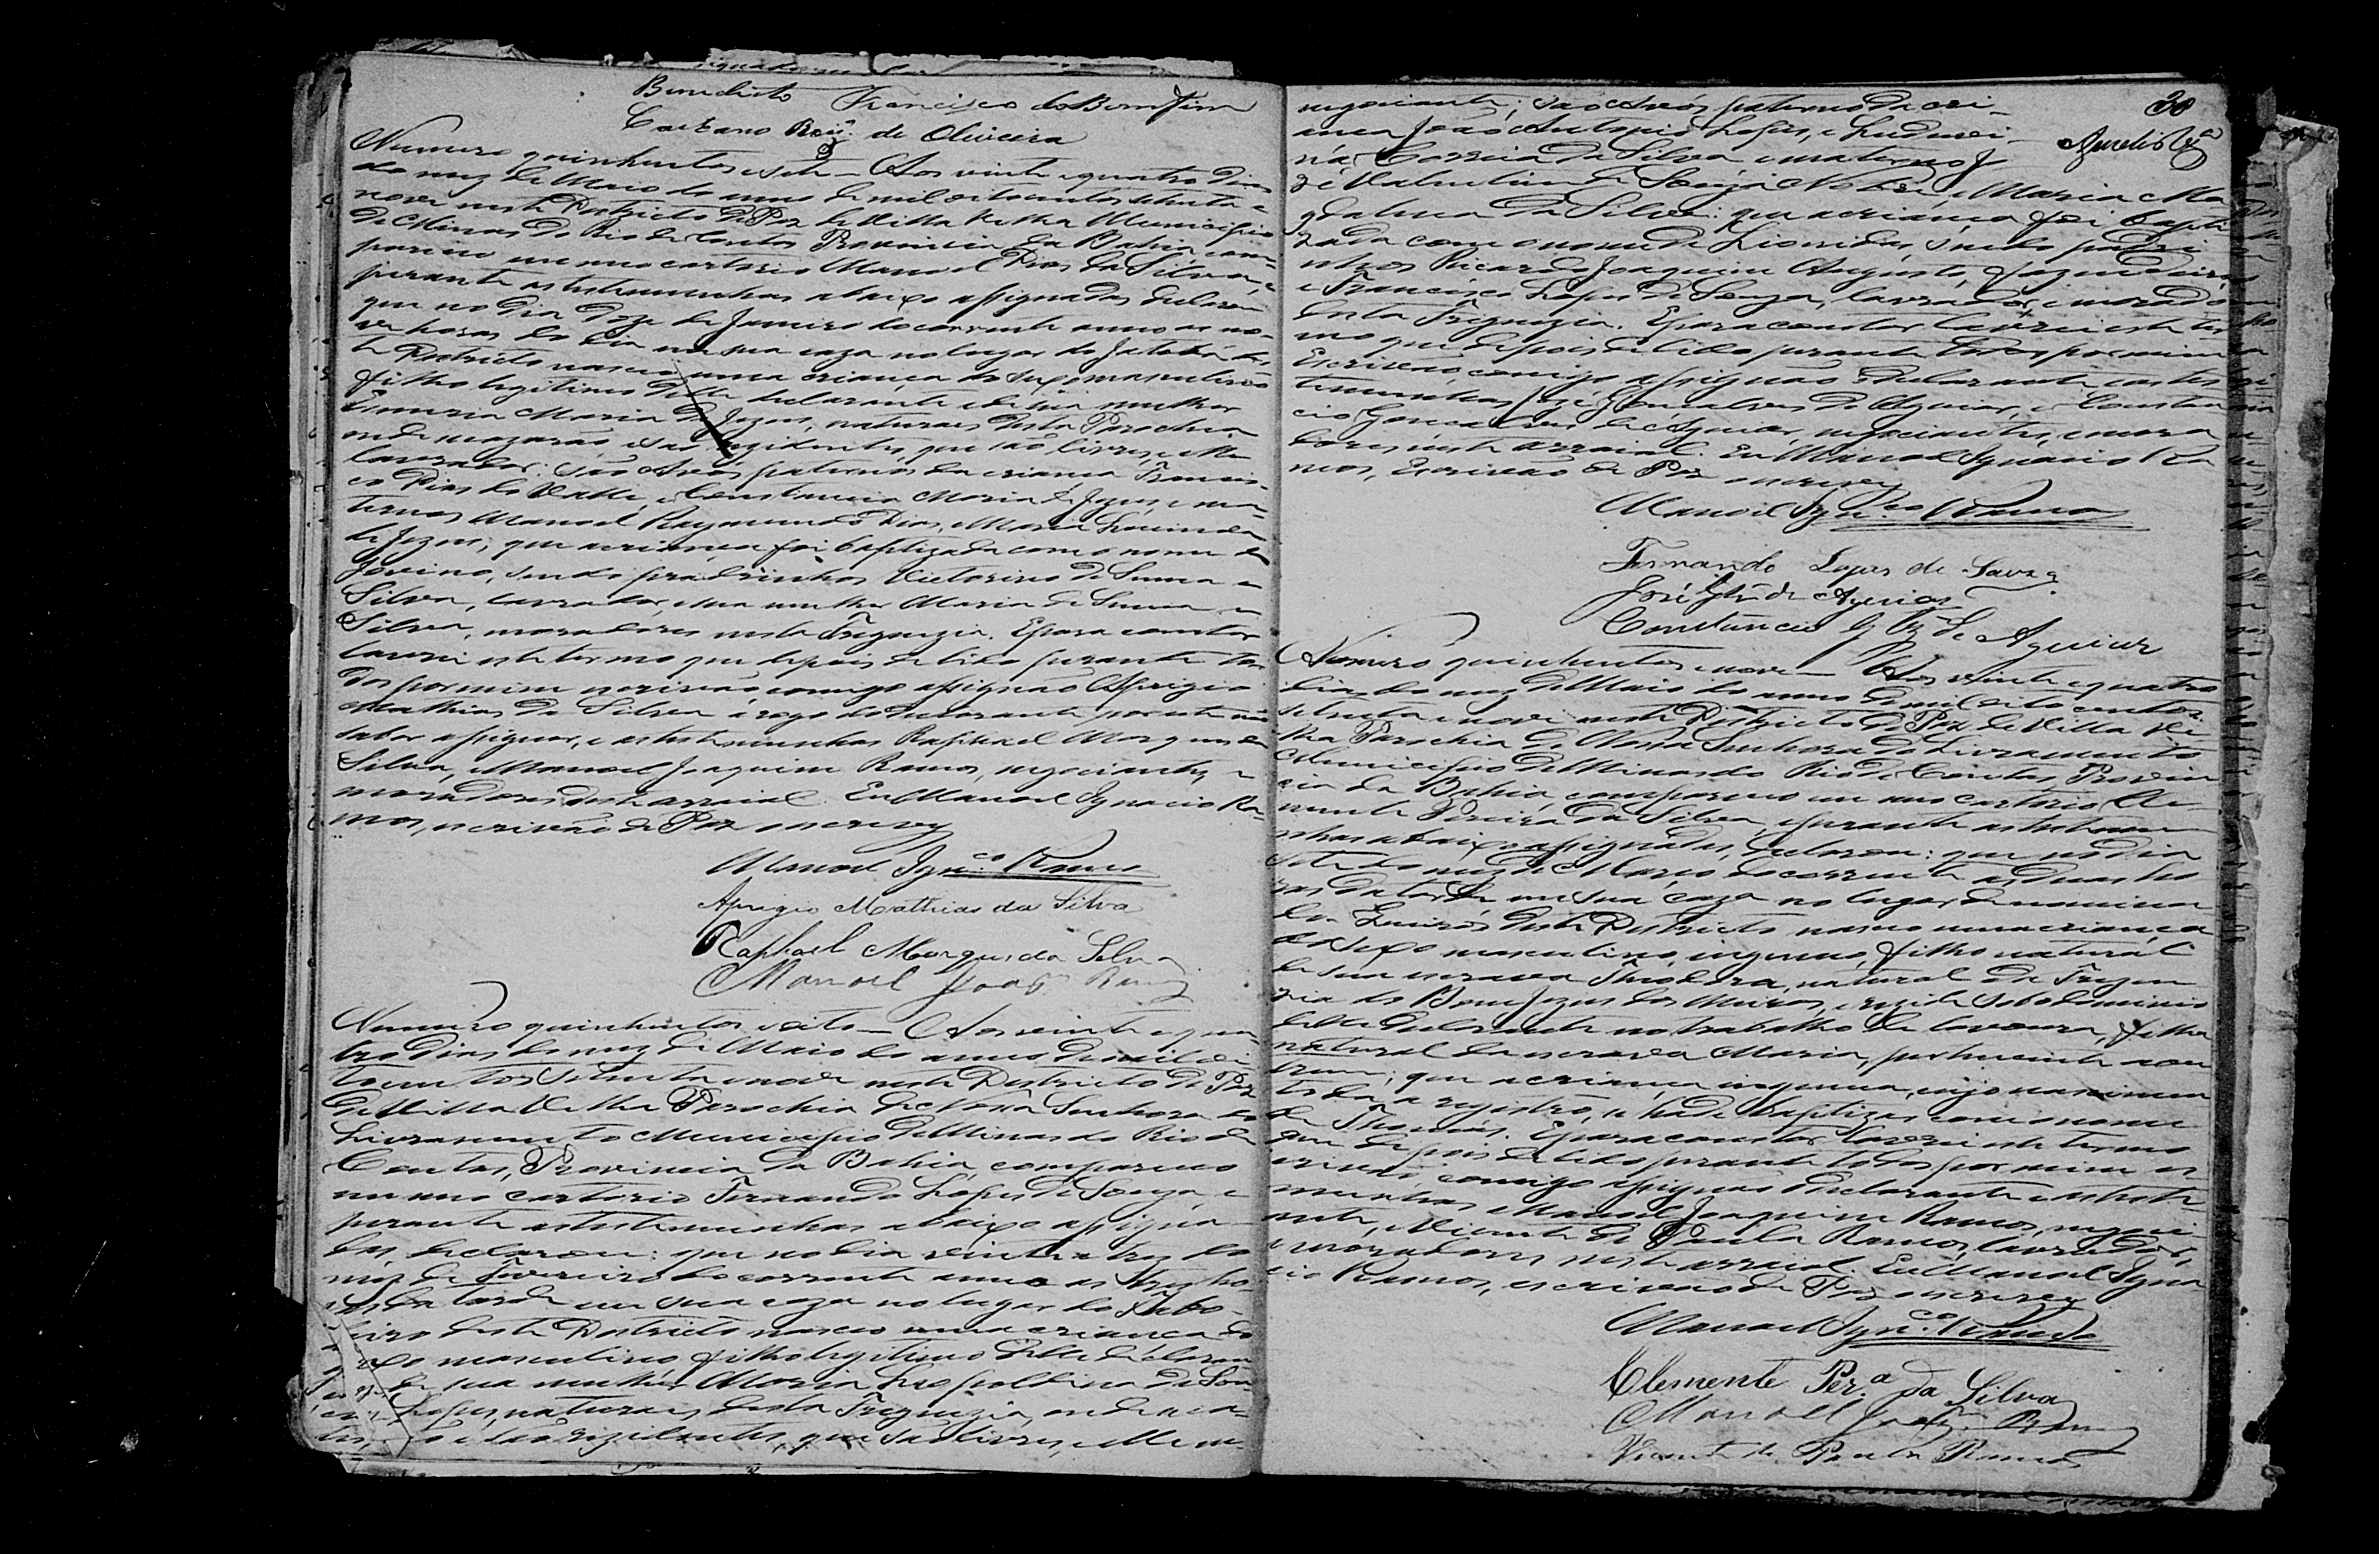 Benedicto Francisco do Bomfim
Caetano de Oliveira
Numero quinhentos e sete — Aos vinte e quatro dias
do mez de Maio do anno de mil oitocentos setenta e
nove neste Districto de Paz de Villa Velha Municipio
de Minas do Rio de Contas Provincia da Bahia, com-
pareceo em meo cartorio Manoel Dias da Silva, e
perante as testemunhas abaixo assignadas declarou
que no dia doze de Janeiro do corrente anno as no-
ve horas do dia em sua caza no lugar do Jatobá des-
te Districto nasceo uma criança do sexo masculino
filho legitimo delle declarante e de sua mulher
Maria de Jezus, naturaes desta Parochia
onde cazarão, e são rezidentes, que são livres, e elle
lavrador: são Avós paternos da criança Francis-
co Dias do Valle, e Constancia Maria de Jezus, e ma-
ternos Manoel Raymundo Dias, e Maria
de Jezus; que a criança foi baptizada com o nome de
Jovino, sendo padrinhos Victorino de Sousa e
Silva, lavrador, e sua mulher Maria de Sousa e
Silva, moradores nesta Freguezia. E para constar
lavrei este termo que depois de lido perante to-
dos por mim escrivão comigo assignão Aprigio
Mathias da Silva a rogo do declarante por este não
saber assignar, e as testemunhas Raphael Marques da
Silva, e Manoel Joaquim Ramos, negociantes, e
moradores deste arraial. Eu Manoel Ignacio Ra-
mos, escrivão de Paz escrevy
Manoel Ign.co Ramos
Aprigio Mathias da Silva
Raphael Marques da Silva
Manoel Joaqm Ramos
Numero quinhentos e oito — Aos vinte e qua-
tro dias do mez de Maio do anno de mil oi-
tocentos setenta e nove neste Districto de Paz
de Villa Velha Parochia de Nossa Senhora do
Livramento Municipio de Minas do Rio de
Contas, Provincia da Bahia, compareceo
em meo cartorio Fernando Lopes de Souza, e
perante as testemunhas abaixo assigna-
das declarou: que no dia vinte e tres do
mez de Fevereiro do corrente anno as tres ho-
ras da tarde em sua caza no lugar do Tabo-
leiro deste Districto nasceo uma criança do
sexo masculino, filho legitimo delle declaran-
te e de sua mulher Maria Leopoldina de Sou-
za Lopes, naturaes desta Freguezia, onde
e são rezidentes, que são livres, e elle ne-
30
negociante; são Avós paternos da cri-
ança João Antonio Lopes, e
Correia da Silva e maternos Jo-
zé Valentim de Souza e Maria Ma-
gdalena da Silva: que a criança foi bapti-
zada com o nome de Leonidas, sendo padri-
nhos Ricardo Joaquim Augusto, fazendeiro,
e Francisco Lopes de Souza, lavrador, e morador
desta Freguezia. E para constar lavrei este ter-
mo que depois de lido perante todos por mim
Escrivão, comigo assignão o declarante e as tes-
temunhas José Gonçalves de Aguiar, e Constan-
cio Gonçalves de Aguiar, negociantes, e mora-
dores neste arraial. Eu Manoel Ignacio Ra-
mos, Escrivão de Paz escrevy
Manoel Ign.co Ramos
Fernando Lopes de Souza
José Glz de Aguiar
Constancio Glz de Aguiar
Numero quinhentos e nove — Aos vinte e quatro
dias do mez de Maio do anno de mil oitocentos
setenta e nove neste Districto de Paz de Villa Ve-
lha Parochia de Nossa Senhora do Livramento
Municipio de Minas do Rio de Contas, Provin-
cia da Bahia, compareceo em meo cartorio Cle-
mente Pereira da Silva, e perante as testemu-
nhas abaixo assignadas, declarou: que no dia
sete do mez de Março do corrente as duas ho-
ras da tarde em sua caza no lugar denomina-
do deste Districto nasceo uma criança
do sexo masculino, ingenuo, filho natural
de sua escrava Theodora, natural da Fregue-
zia do Bom Jezus dos Meiras, e rezide sob o dominio
delle declarante no trabalho de lavoura, filha
natural da escrava Maria, pertencente
que a criança ingenua, cujo nascimen-
to dá a registro, se ha de baptizar com o nome
de Thomás. E para constar lavrei este termo
que depois de lido perante todos por mim es-
crivão, comigo assignão o declarante e as teste-
munhas Manoel Joaquim Ramos, negoci-
ante, e Vicente de Paula Ramos, lavrador,
e moradores neste arraial. Eu Manoel Igna-
cio Ramos, escrivão de Paz escrevy
Manoel Ign.co Ramos
Clemente Per.a da Silva
Manoel Joaqm Ramos
Vicente de Paula Ramos